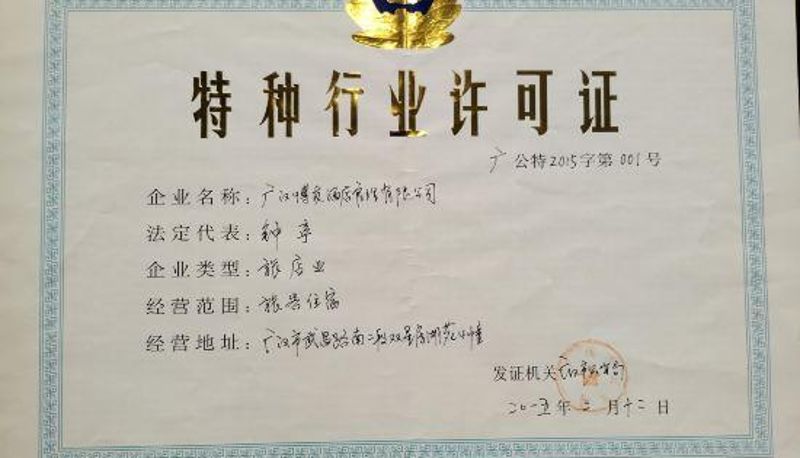 特种行业许可证
广公特2015字第001号
企业名称：广汉博良酒店管理有限公司
法定代表：钟亭
企业类型：旅店业
经营范围：旅客住宿
经营地址：广汉市武昌路南二段双星房湖苑小幢
发证机关 广汉市公安局
二0一五年二月十二日